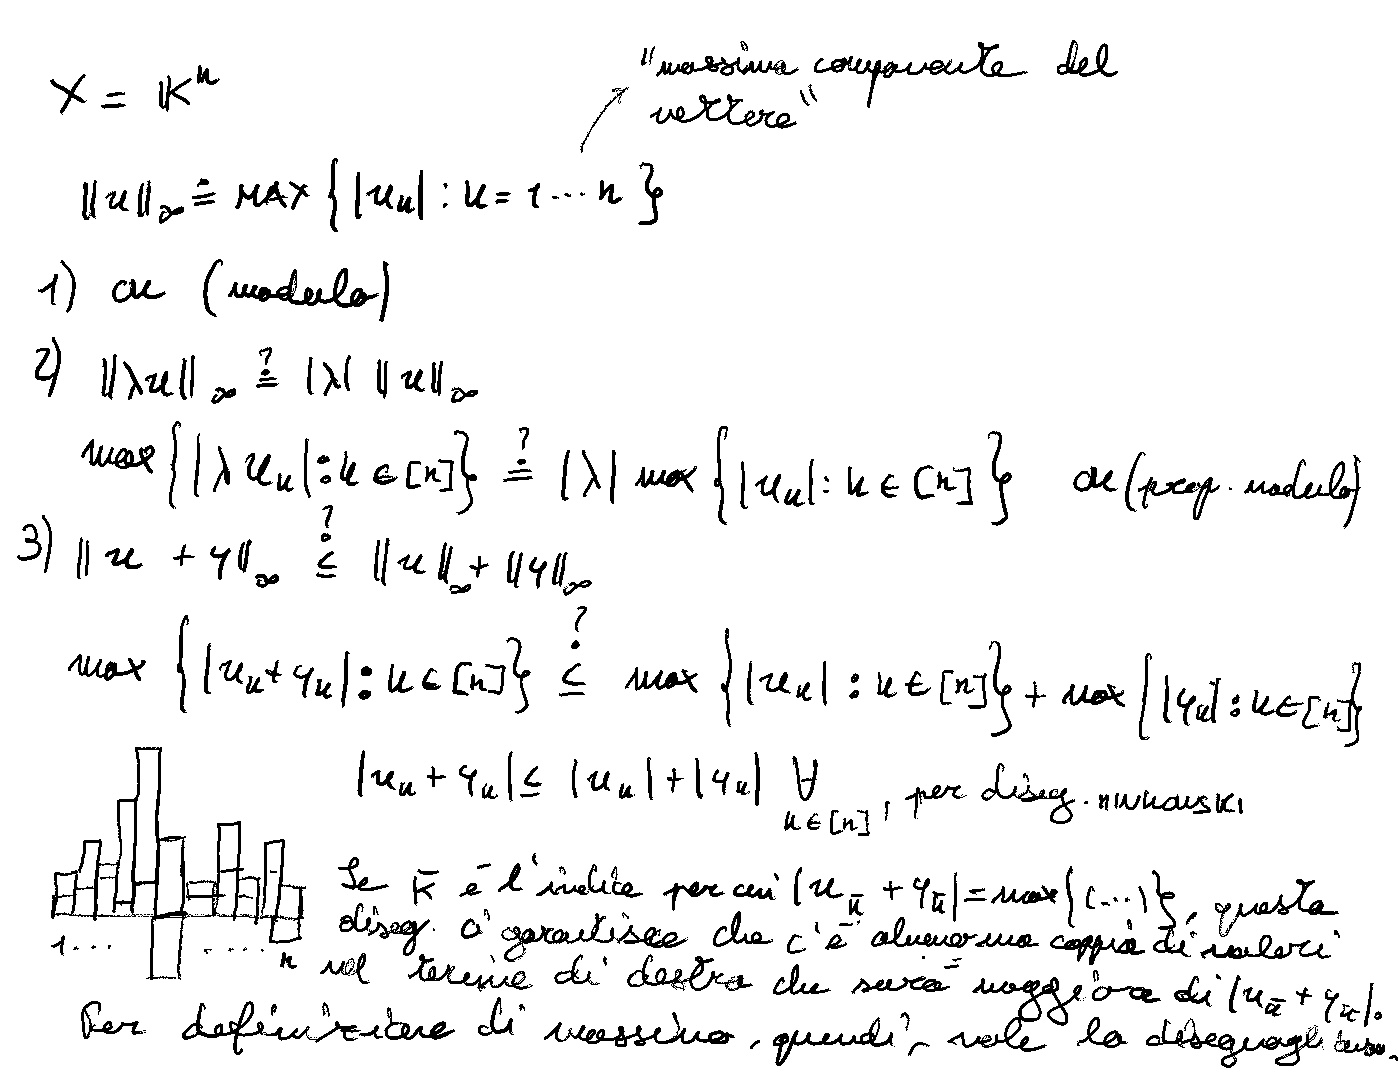 "massima componente del
vettore"
X = 𝕂ⁿ
‖x‖_∞ ≐ MAX { |x_k| : k = 1 ... n }
1) ok (modulo)
2) ‖λx‖_∞ ≟ |λ| ‖x‖_∞
max { |λ x_k| : k ∈ [n] } ≟ |λ| max { |x_k| : k ∈ [n] } ok (prop. modulo)
3) ‖x + y‖_∞ ≤? ‖x‖_∞ + ‖y‖_∞
max { |x_k + y_k| : k ∈ [n] } ≤? max { |x_k| : k ∈ [n] } + max { |y_k| : k ∈ [n] }
|x_k + y_k| ≤ |x_k| + |y_k| ∀ k ∈ [n], per diseg. MINKOWSKI
Se k̄ è l'indice per cui |x_k̄ + y_k̄| = max{(...)}, questa
diseg. ci garantisce che c'è almeno una coppia di valori
1... .... n
nel termine di destra che sarà maggiore di |x_k̄ + y_k̄|.
Per definizione di massimo, quindi, vale la diseguaglianza.